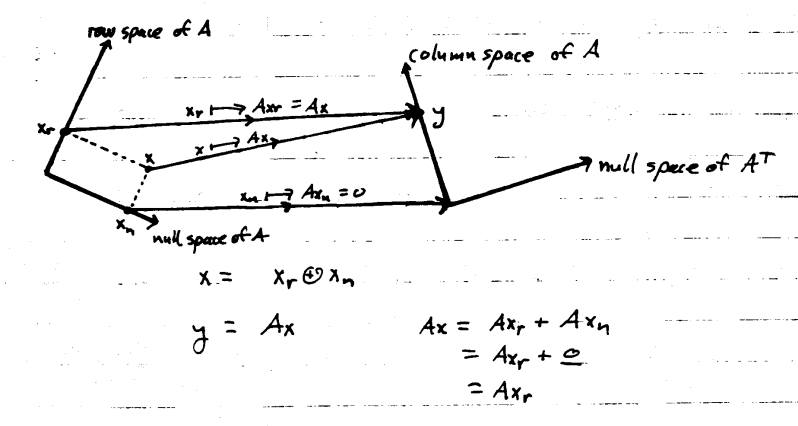 row space of A
column space of A
x_r ↦ Ax_r = Ax
x_r
y
x ↦ Ax
x
null space of A^T
x_n ↦ Ax_n = 0
x_n
null space of A
x = x_r ⊕ x_n
y = Ax
Ax = Ax_r + Ax_n
= Ax_r + 0
= Ax_r